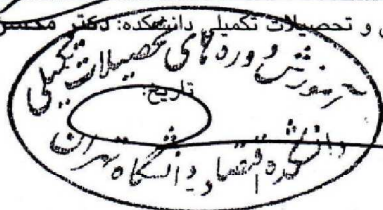 و تحصیلات تکمیلی دانشکده: دکتر محسن
آموزش و دوره های تحصیلات تکمیلی
تاریخ:
دانشکده اقتصاد دانشگاه تهران